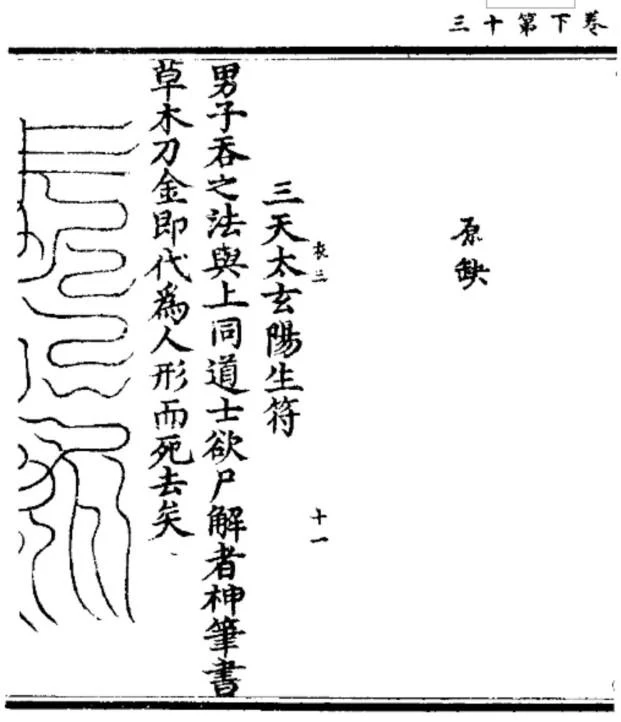 卷下第十三
原缺
衣三
十一
三天太玄陽生符
男子吞之法與上同道士欲尸解者神筆書
草木刀金即代爲人形而死去矣